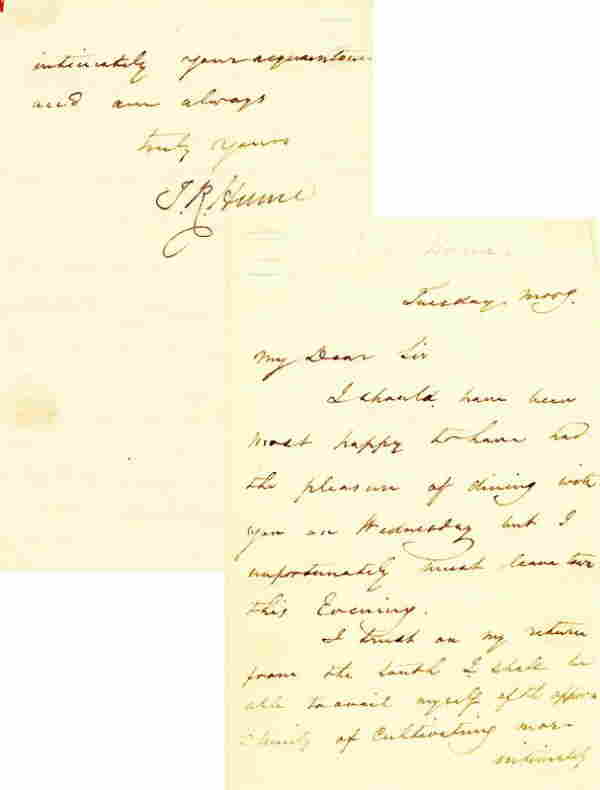 Tuesday Morng.
My Dear Sir
I should have been
most happy to have had
the pleasure of dining with
you on Wednesday but I
unfortunately must leave town
this Evening.
I trust on my return
from the South I shall be
able to avail myself of the oppor-
tunity of Cultivating more
intimately
intimately your acquaintance
and am always
truly yours
J. R. Hume